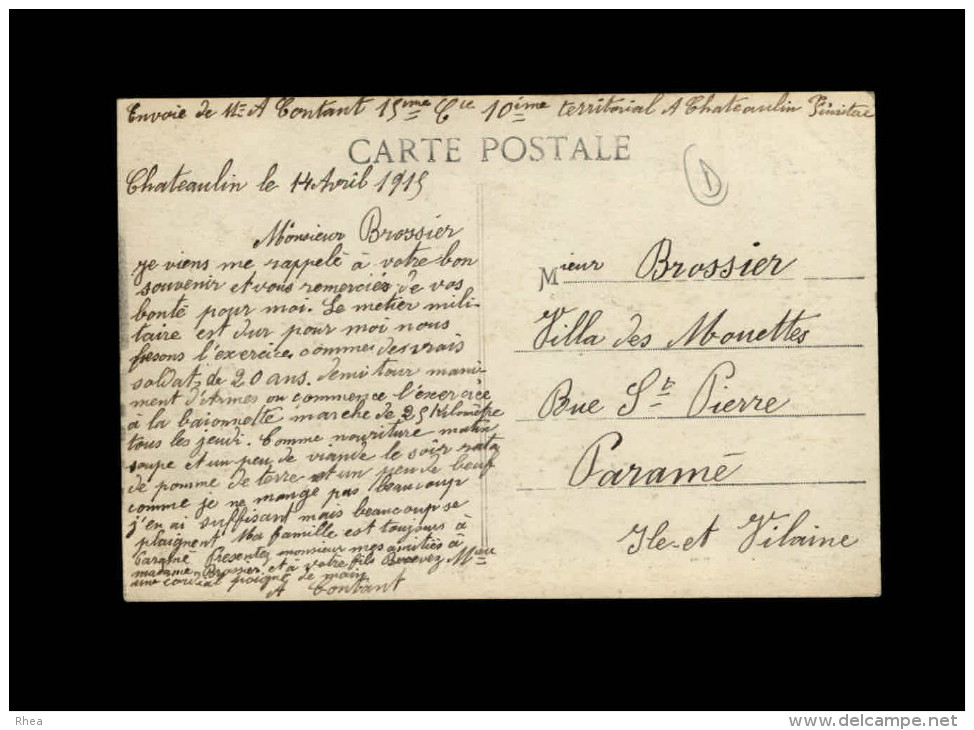 Envoie de Mr A Contant 15ème Cie 10ème territorial A Chateaulin Finistere
CARTE POSTALE
Chateaulin le 14 Avril 1915
Monsieur Brossier
je viens me rappelé à votre bon
souvenir et vous remerciés de vos
bonté pour moi. Le metier mili-
taire est dur pour moi nous
fesons l'exercice comme des vrais
soldat de 20 ans. demi tour mani-
ment d'Armes on commence l'exercice
à la baïonnette marche de 25 Kilomètre
tous les jeudi. Comme nouriture matin
soupe et un peu de viande le soir rata
de pomme de terre et un peu de beuf
comme je ne mange pas beaucoup
j'en ai suffisant mais beaucoup se
plaignent Ma famille est toujours à
Paramé Presentez monsieur mes amitiés à
madame Brossier et à votre fils Recevez Mieur
une cordial poigné de main
A Contant
Mieur Brossier
Villa des Mouettes
Rue St Pierre
Paramé
Ile et Vilaine
D
Rhea
www.delcampe.net